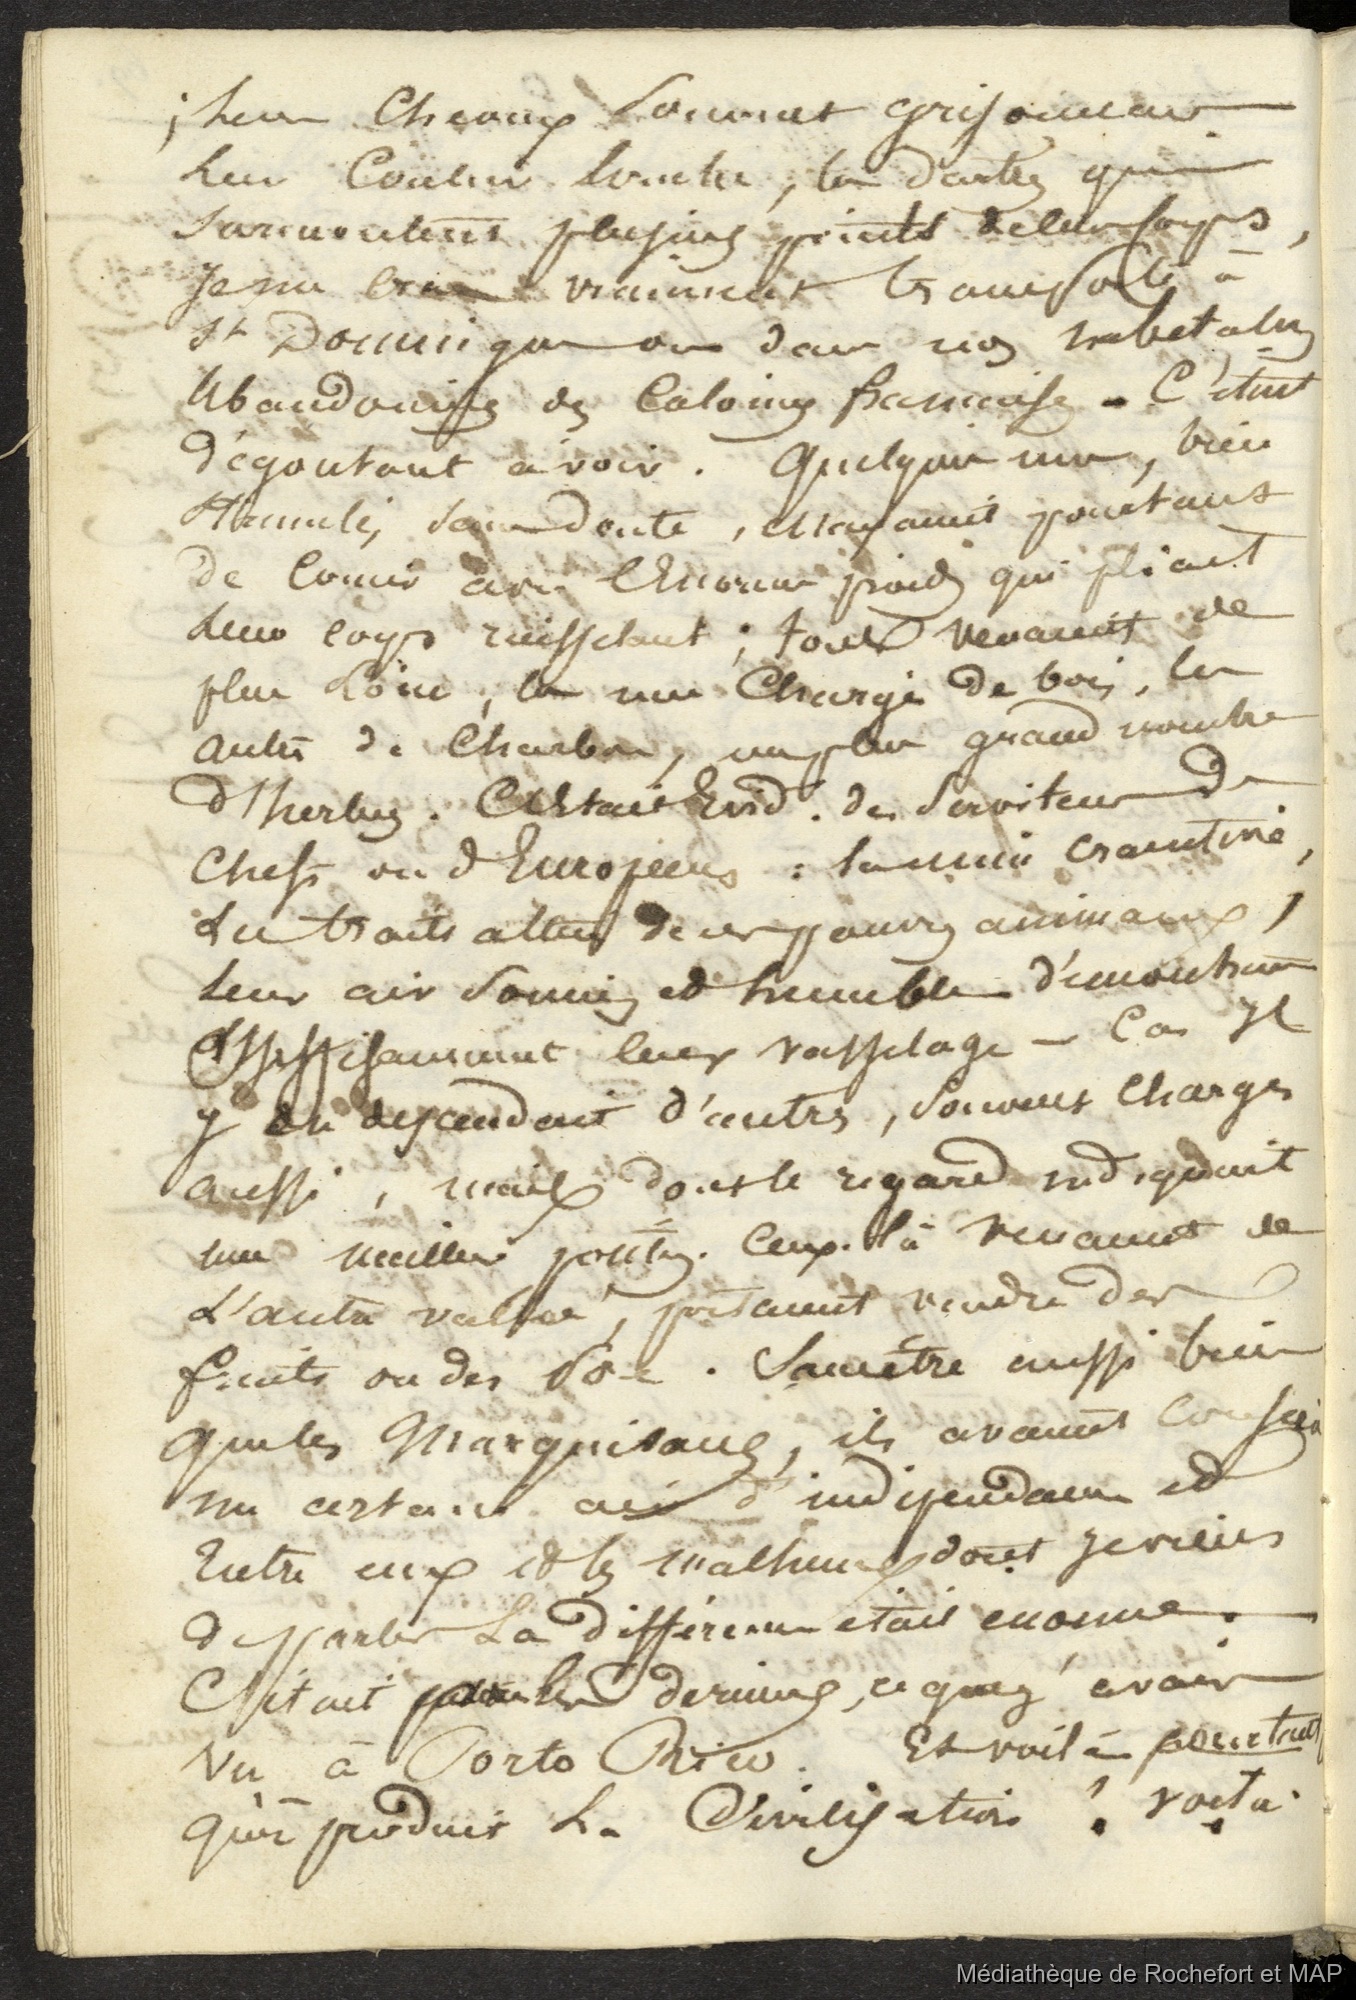 ; leur cheveux souvent grisonnans
leur couleur bronzée, les dartres qui
surmontent plusieurs points de leur corps,
Je me crus vraiment transporté à
St Domingue ou dans nos
abandonnées des Colonies françaises - C'était
dégoutant à voir. Quelques uns, bien
stimulés sans doute, essayaient pourtant
de courir avec l'énorme poids qui pliait
leur corps ruisselant ; tous venaient de
plus loin, les uns chargés de bois, les
autres de charbon, un plus grand nombre
d'herbes. C'était Evid.t des serviteurs de
Chefs ou d'Européens : la mine craintive,
les traits altérés de ces pauvres animaux,
leur air soumis et humble démontraient
suffisamment leur vasselage - Car Il
y en descendait d'autres, souvent chargés
aussi, mais dont le regard indiquait
une meilleure position. Ceux-là venaient de
l'autre vallée, portaient vendre des
fruits ou des Poe. Sans être aussi bien
que les Marquisans, ils avaient conservé
un certain air d'indépendance et
Entre eux et les malheureux dont je viens
de parler la différence était enorme.
C'était pour les derniers, ce que j'avais
vu à Porto Rico. Et voilà pourtant
qu'on produit la Civilisation ! voilà